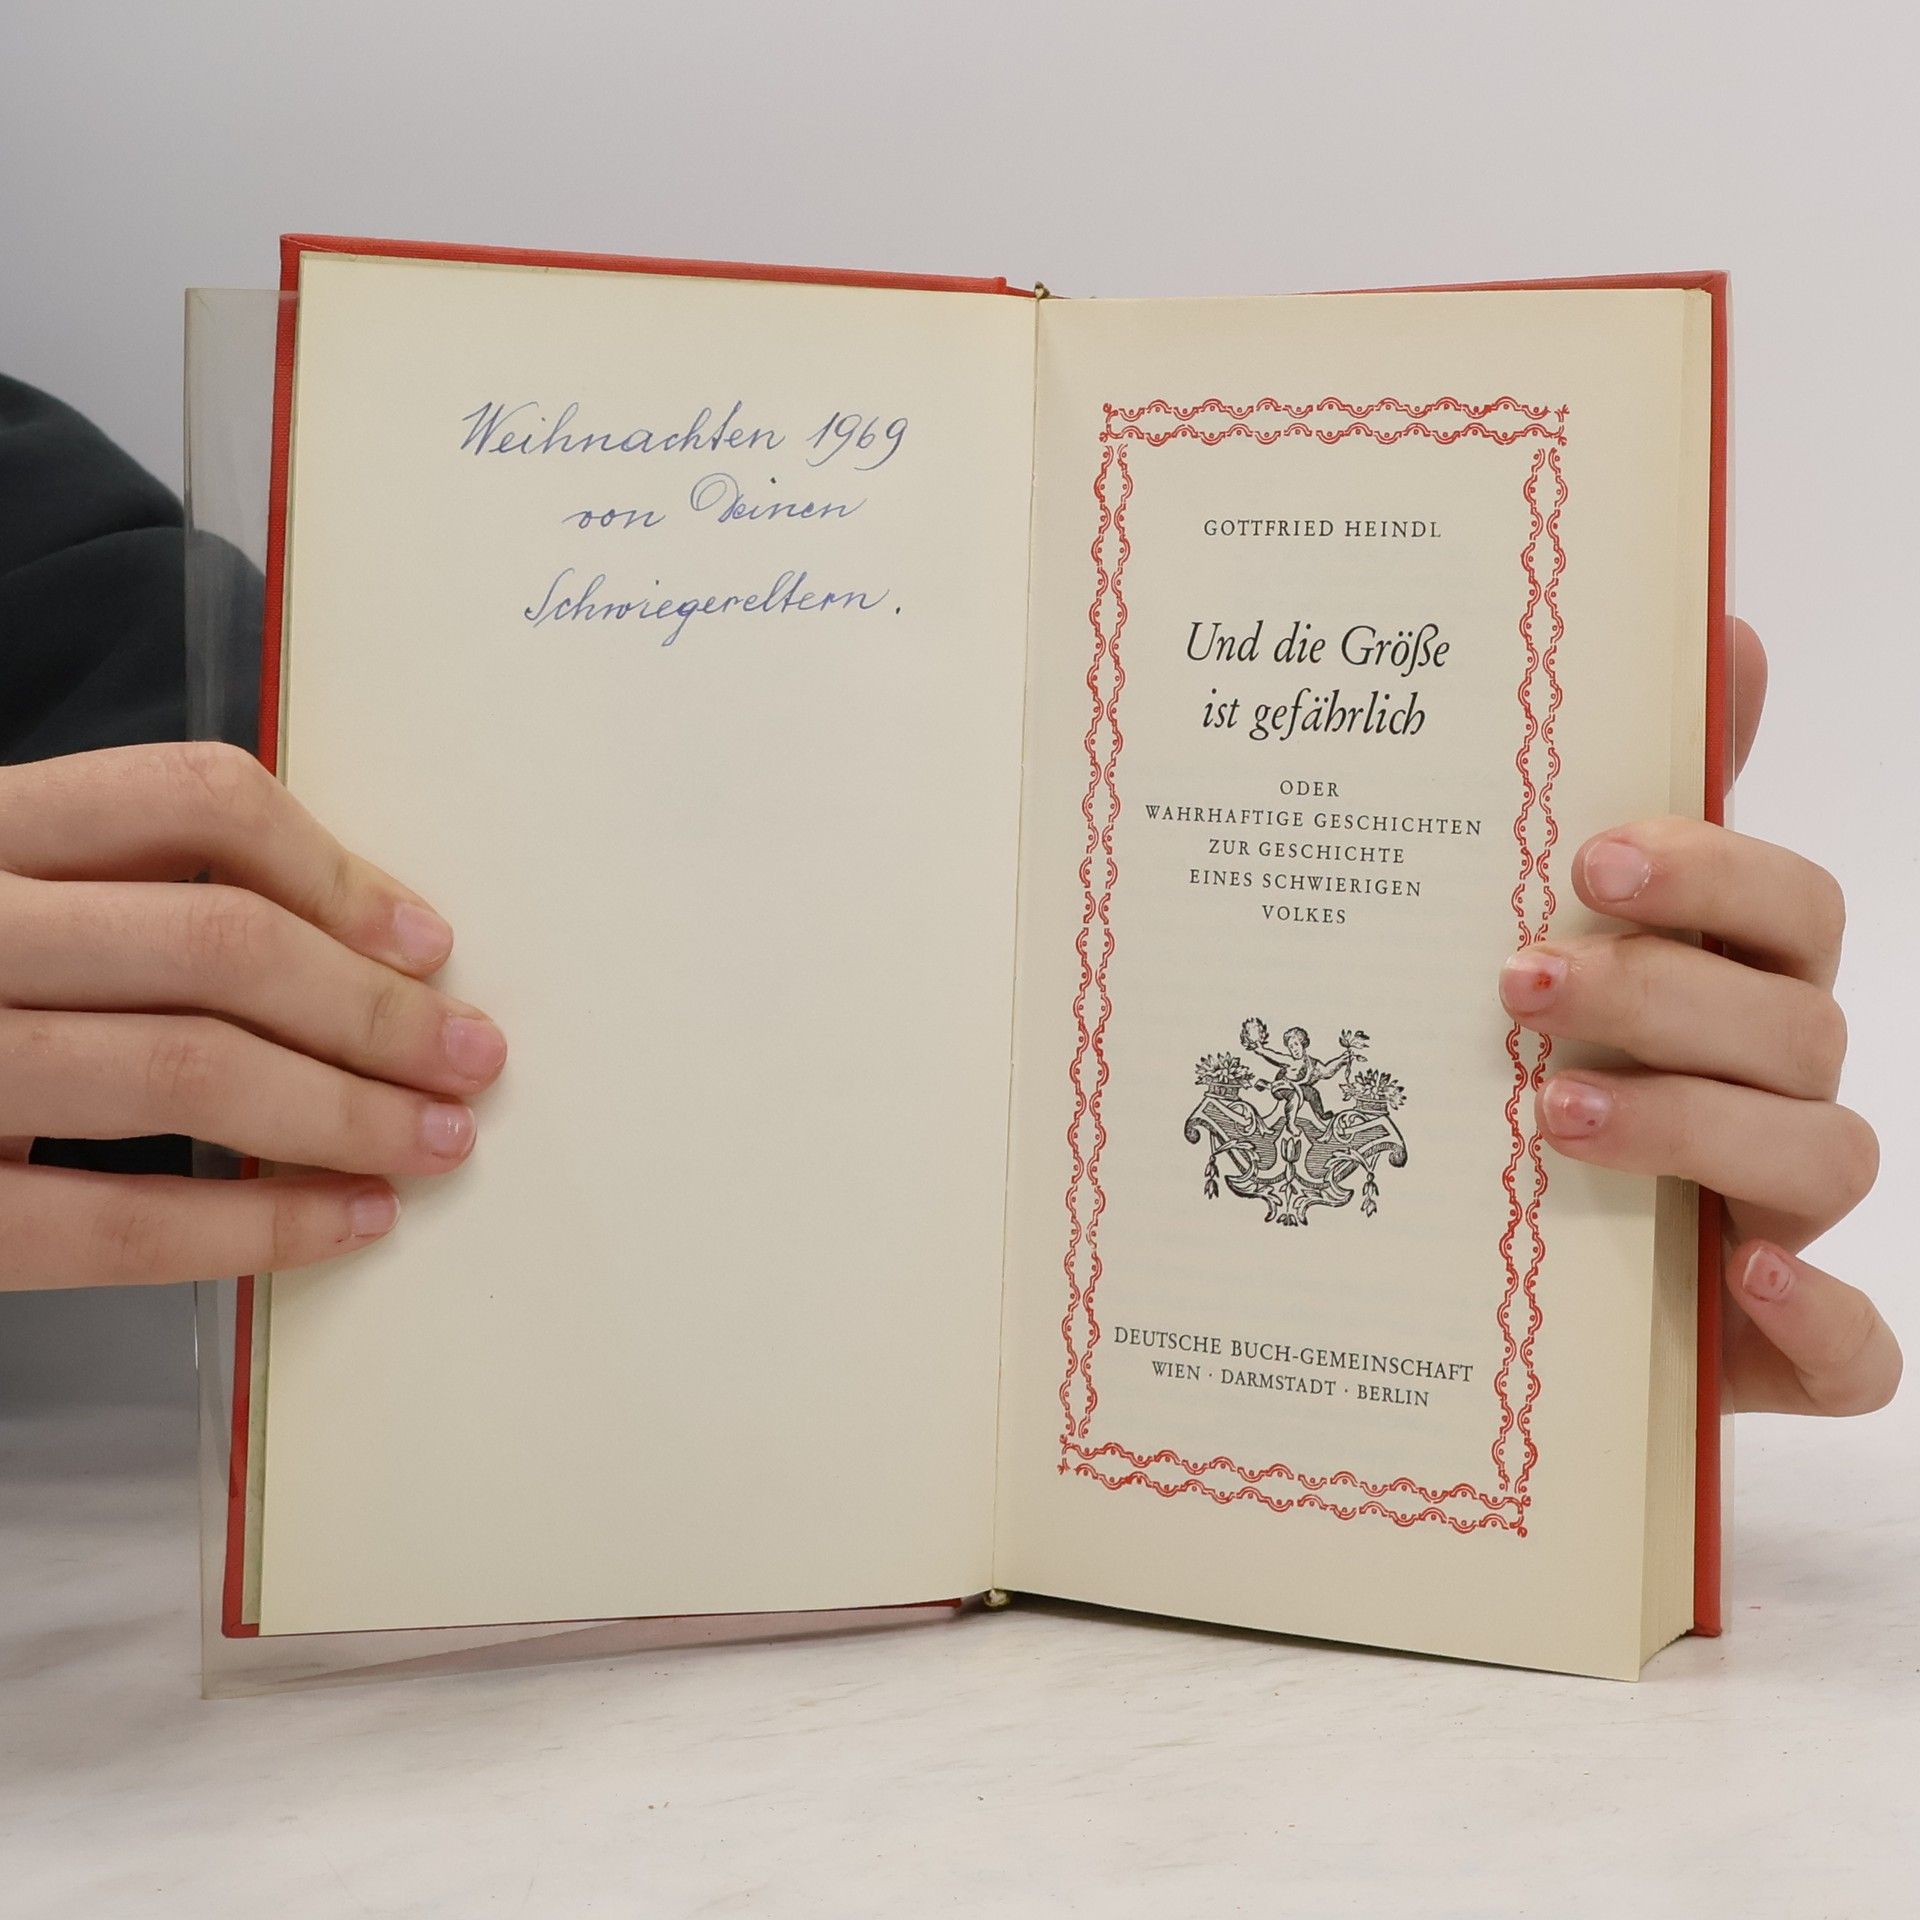 Weihnachten 1969
von Deinen
Schwiegereltern.
GOTTFRIED HEINDL
Und die Größe
ist gefährlich
ODER
WAHRHAFTIGE GESCHICHTEN
ZUR GESCHICHTE
EINES SCHWIERIGEN
VOLKES
DEUTSCHE BUCH-GEMEINSCHAFT
WIEN · DARMSTADT · BERLIN